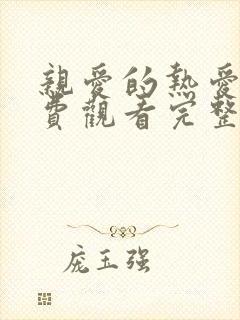 親愛的熱愛
費觀看完整
庞玉强